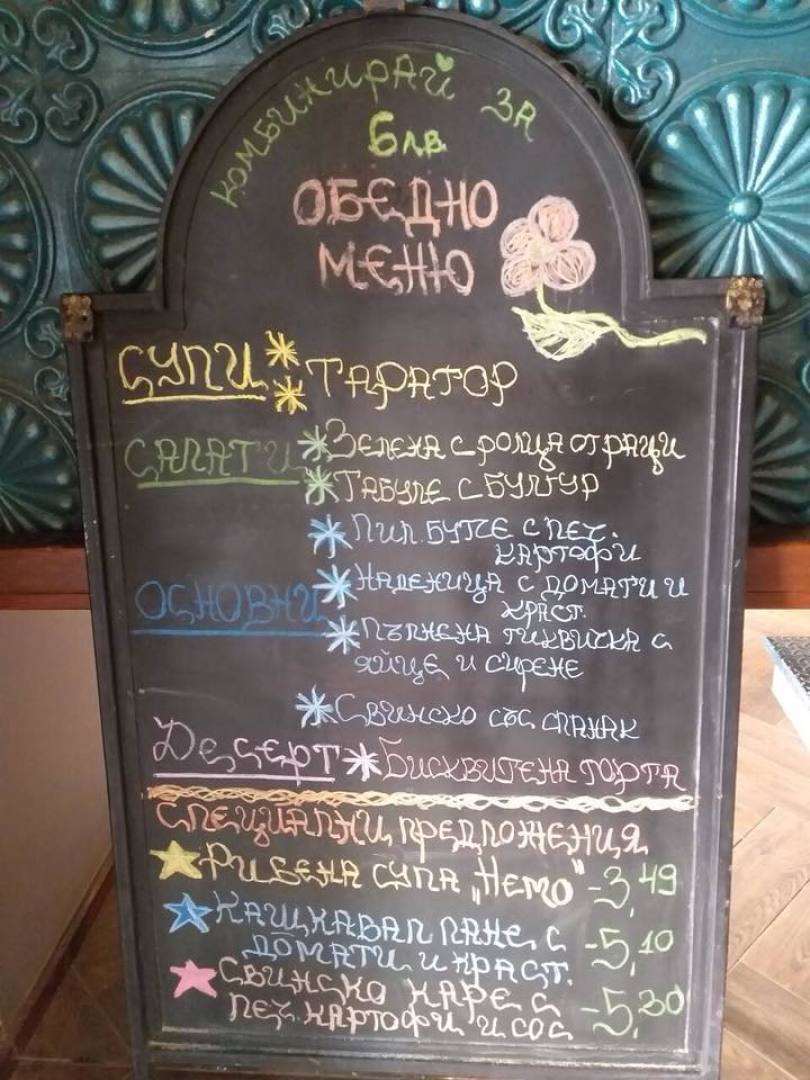 КОМБИНИРАЙ ЗА
6лв
ОБЕДНО
МЕНЮ
СУПИ * ТАРАТОР
САЛАТИ * ЗЕЛЕНА С РОЛЦА ОТ РАЦИ
* ТАБУЛЕ С БУЛГУР
* ПИЛ. БУТЧЕ С ПЕЧ.
КАРТОФИ
ОСНОВНИ * НАДЕНИЦА С ДОМАТИ И
КРАСТ.
* ПЪЛНЕНА ТИКВИЧКА С
ЯЙЦЕ И СИРЕНЕ
* СВИНСКО СЪС СПАНАК
ДЕСЕРТ * БИСКВИТЕНА ТОРТА
СПЕЦИАЛНИ ПРЕДЛОЖЕНИЯ
РИБЕНА СУПА „НЕМО“ - 3,49
КАШКАВАЛ ПАНЕ С - 5,10
ДОМАТИ И КРАСТ.
СВИНСКО КАРЕ С - 5,30
ПЕЧ. КАРТОФИ И СОС